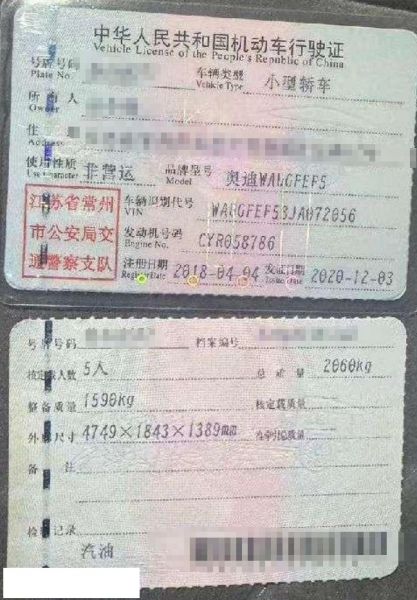 中华人民共和国机动车行驶证
Vehicle License of the People's Republic of China
号牌号码 车辆类型 小型轿车
Plate No. Vehicle Type
所有人
Owner
住
Address
使用性质 非营运 品牌型号 奥迪WAUGFEF5
Use Character Model
江苏省常州
市公安局交
通警察支队
车辆识别代号 WAUGFEF53JA072056
VIN
发动机号码 CYR058786
Engine No.
注册日期 2018-04-04 发证日期 2020-12-03
Register Date Issue Date
号牌号码 档案编号
核定载人数 5人 总质量 2060kg
整备质量 1590kg 核定载质量
外廓尺寸 4749×1843×1389mm
备注
检验记录
汽油